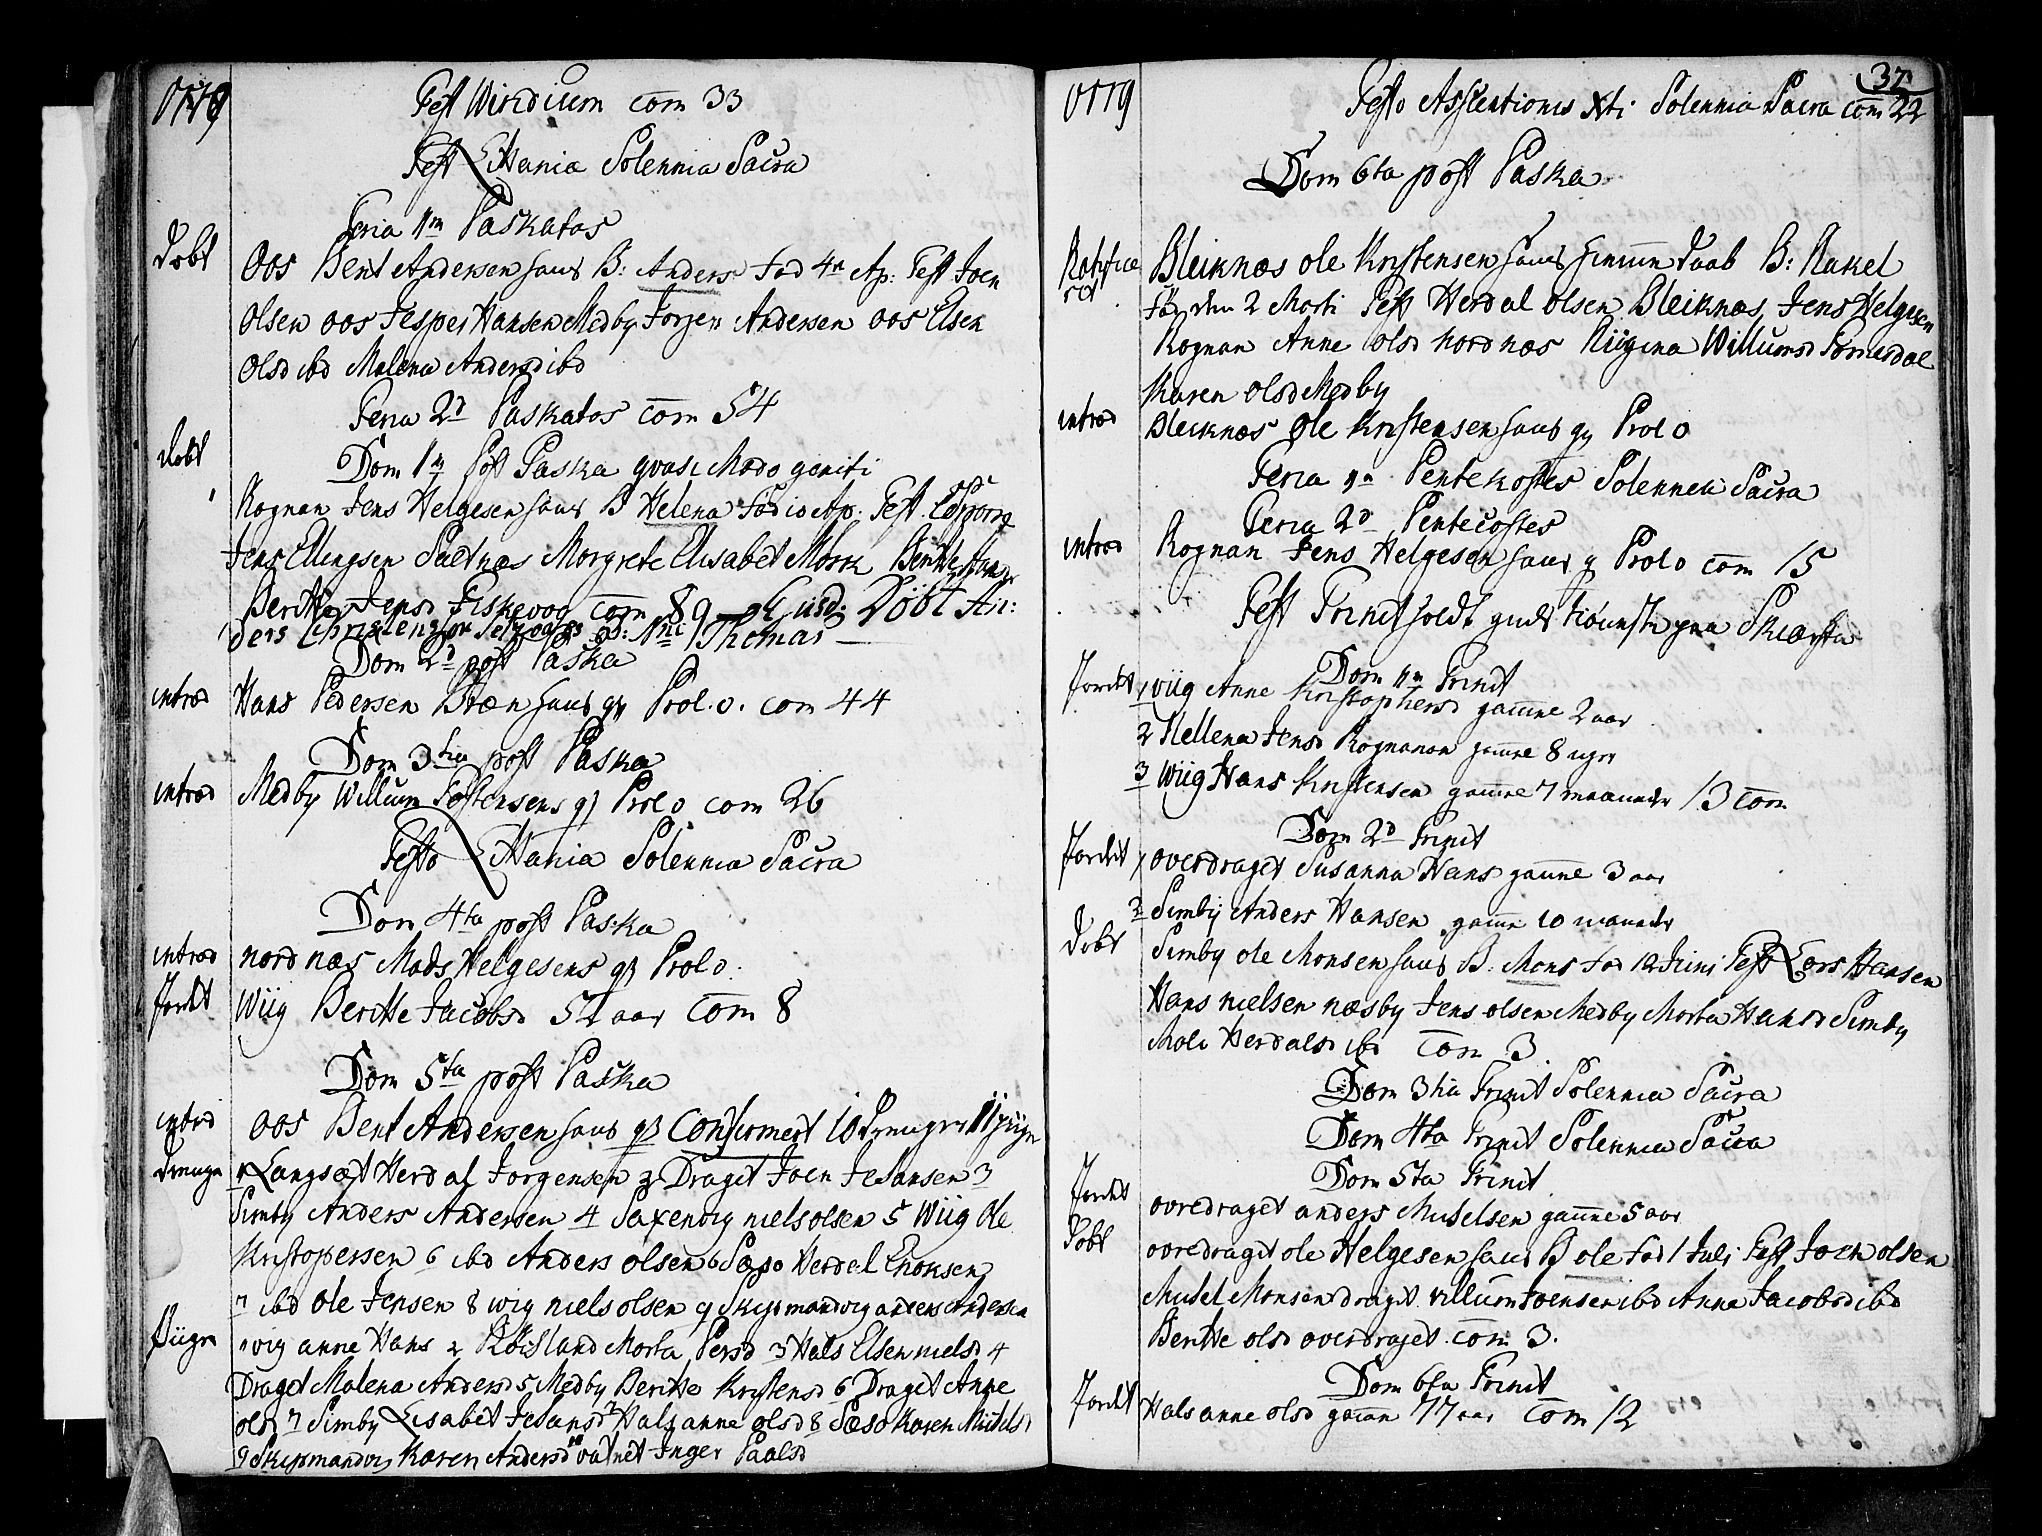 1779
Fest Wiridium com 33
Fest Litania Solennia Sacra
Feria 1m Paskatos
Døbt
Oos Bent Andersen hans B: Anders Fød 4n Ap: Test Joen
Olsen oos Jesper Hansen Medby Jørgen Andersen oos Elsen
Olsd ibd Malena Andersd ibd
Feria 2d Paskatos com 54
Døbt
Dom 1m post Paska qvasi Modo geniti
Rognan Jens Helgesen hans B Helena Fød 10 Ap: Test
Jens Ellingsen Saltnæs Morgrete Elisabet Mørk Berthe
Berithe Jensd Fiskevog com 89 Eusd: Døbt An:
ders Christensen B: Nni Thomas
Dom 2d post Paska
introd
Hans Pedersen Bræn hans qv Prol. o. com 44
Dom 3tia post Paska
introd
Medby Willum Tostensens qv Prol o com 26
Festo Litania Solennia Sacra
Dom 4ta post Paska
introd
nordnæs Mads Helgesens qv Prol o.
Jordt
Wiig Berithe Jacobsd 52 aar com 8
Dom 5ta post Paska
introd
oos Bent Andersen hans qv Confirmert 10 Drenger 11 piiger
Drenge
1 Langsæt Herdal Jorgensen 2 Draget Joen Johansen 3
Simby Anders Andersen 4 Saxenvig niels olsen 5 Wiig Ole
Kristopersen 6 ibd Anders olsen 6 Sæso Herdal Enoksen
7 ibd Ole Jensen 8 wig niels olsen 9 Skipmandvig anders andersen
Piiger
1 vig anne Hans 2 Røisland Morta Persd 3 Hals Elsen nielsd 4
Draget Malena Andersd 5 Medby Berithe Kristensd 6 Draget Anne
olsd 7 Simby Lisabet Johansd 7 Hals anne olsd 8 Sæso Karen Mickelsd
9 Skipmandvig Karen Andersd 10 vatnet Inger Paalsd
1779
37
Festo Assentionis Xti Solennia Sacra com 22
Dom 6ta post Paska
Ratifice
ret
Bleiknæs ole Kristensen hans hiemm Daab B: Rakel
Fø den 2 Marti Test Herdal olsen Bleiknæs Jens Helgesen
Rognan Anne olsd nordnæs Riigena Willumsd
Karen olsd Medby
introd
Bleiknæs Ole Kristensen hans qv Prol o
Feria 1m Pentekostes Solennia Sacra
Feria 2d Pentecostes
introd
Rognan Jens Helgesen hans q Prol o com 15
Fest Trinit holdt guds tieuneste paa Skiærsta
Dom 1m Trinit
Jordet
1 wiig Anne Kristophersd gamne 2 aar
2 Hellena Jensd Rognanen gamne 8 uger
3 Wiig Hans Kristensen gamne 7 maaneder 13 com
Dom 2d Trinit
Jordet
1 overdraget Susanna Hans gamne 3 aar
2 Simby Anders Hansen gamn 10 maaneder
Døbt
Simby ole Monsen hans B: Mons Fød 12 Juni Test Lars Hansen
Hans nielsen næsby Jens olsen Medby Morta Hansd Simby
Mali Herdalsd ibd com 3
Dom 3tia Trinit Solennia Sacra
Dom 4ta Trinit Solennia Sacra
Dom 5ta Trinit
Jordet
overdraget anders Mickelsen gamne 5 aar
Døbt
overdraget ole Helgesen hans B ole Fød 1 Juli Test Joen olsen
Mickel Monsen draget Willum Joensen ibd Anne Jacobsd ibd
Berithe olsd overdraget com 3.
Dom 6ta Trinit
Jordet
Hals anne olsd gamn 77 aar com 12